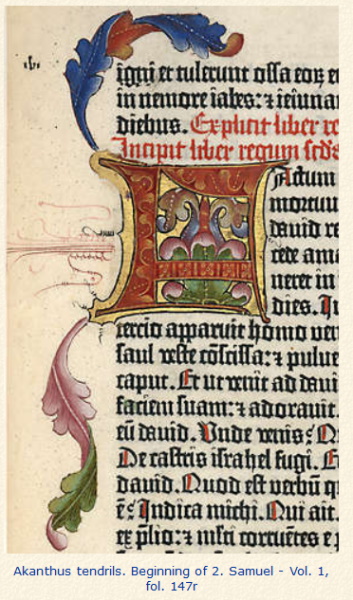 igni et tulerunt ossa eoꝝ e
in nemore iabes: ⁊ ieiuna
diebus. Explicit liber re
Incipit liber regum scd's
FActum
mortuu
dauid re
cede ama
neret in
dies. In
tercio apparuit homo ven
saul veste cōscissa: ⁊ pulue
caput. Et ut venit ad daui
faciem suam: ⁊ adorauit.
eū dauid. Unde venis:
De castris israhel fugi. E
dauid. Quod est verbū q
ē: Indica michi. Qui ait.
ex p̄lio: ⁊ mlti corruētes e p
Akanthus tendrils. Beginning of 2. Samuel - Vol. 1,
fol. 147r